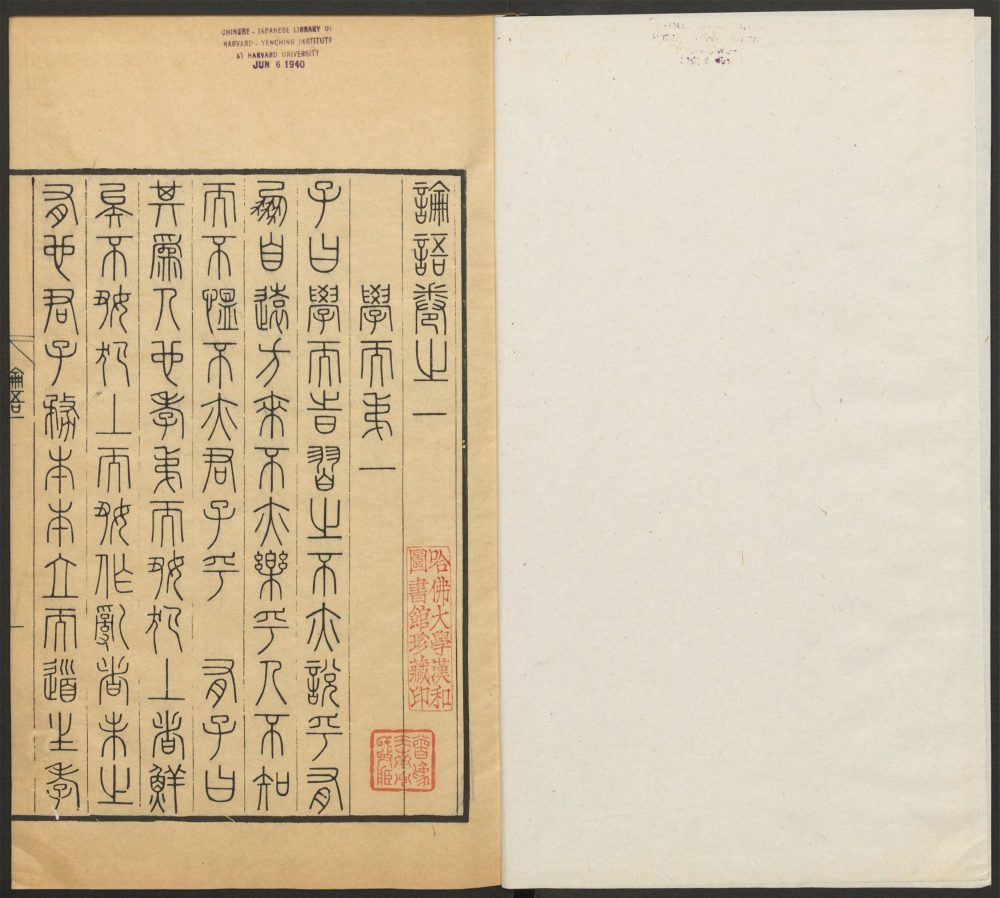 CHINESE - JAPANESE LIBRARY OF
HARVARD - YENCHING INSTITUTE
AT HARVARD UNIVERSITY
JUN 6 1940
論語卷之一
學而弟一
子曰學而時習之不亦說乎有
朋自遠方來不亦樂乎人不知
而不慍不亦君子乎　有子曰
其爲人也孝弟而好犯上者鮮
矣不好犯上而好作亂者未之
有也君子務本本立而道生孝
論語一
哈佛大學漢和
圖書館珍藏印